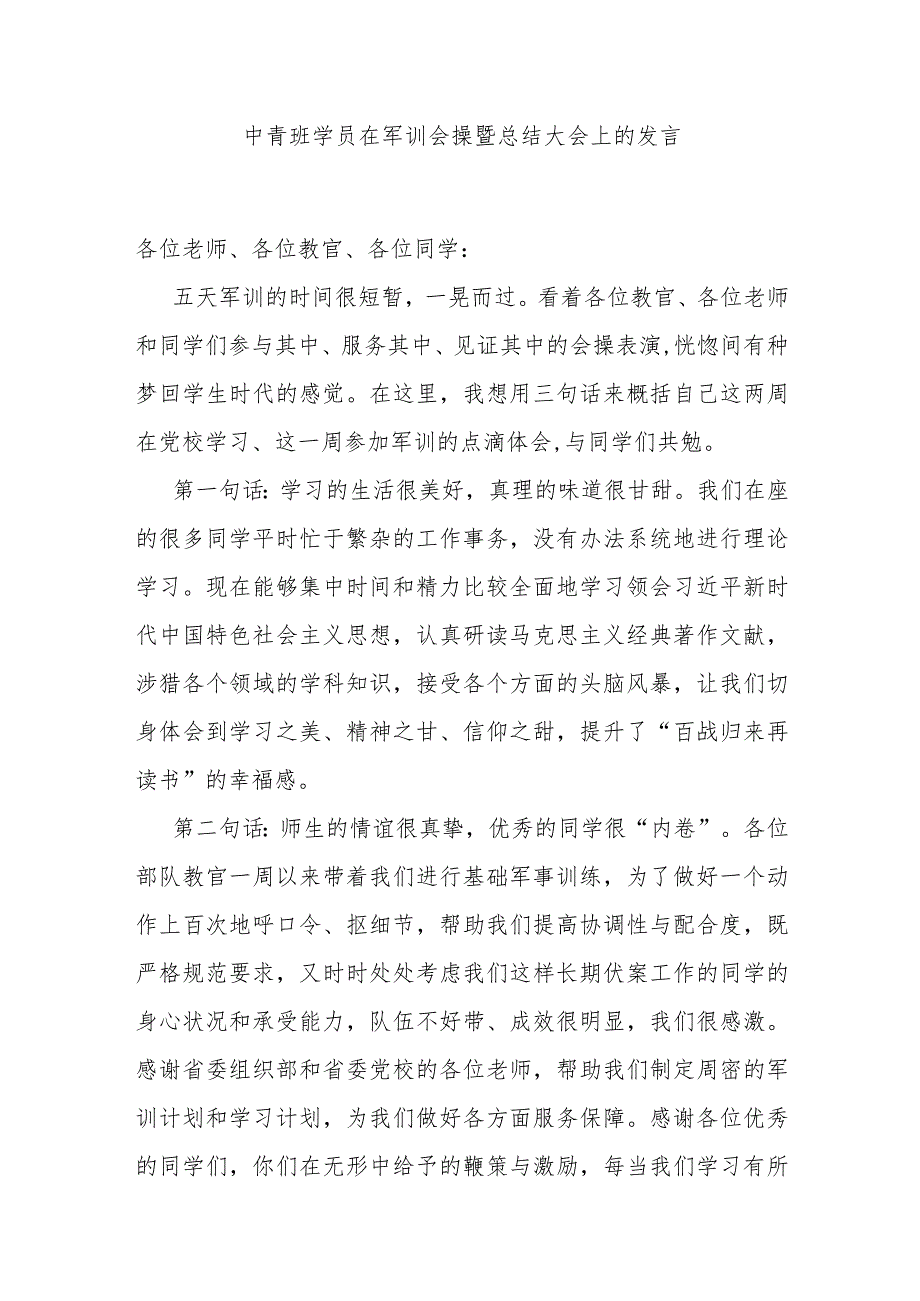 中青班学员在军训会操暨总结大会上的发言
各位老师、各位教官、各位同学：
五天军训的时间很短暂，一晃而过。看着各位教官、各位老师
和同学们参与其中、服务其中、见证其中的会操表演,恍惚间有种
梦回学生时代的感觉。在这里，我想用三句话来概括自己这两周
在党校学习、这一周参加军训的点滴体会,与同学们共勉。
第一句话：学习的生活很美好，真理的味道很甘甜。我们在座
的很多同学平时忙于繁杂的工作事务，没有办法系统地进行理论
学习。现在能够集中时间和精力比较全面地学习领会习近平新时
代中国特色社会主义思想，认真研读马克思主义经典著作文献，
涉猎各个领域的学科知识，接受各个方面的头脑风暴，让我们切
身体会到学习之美、精神之甘、信仰之甜，提升了“百战归来再
读书”的幸福感。
第二句话：师生的情谊很真挚，优秀的同学很“内卷”。各位
部队教官一周以来带着我们进行基础军事训练，为了做好一个动
作上百次地呼口令、抠细节，帮助我们提高协调性与配合度，既
严格规范要求，又时时处处考虑我们这样长期伏案工作的同学的
身心状况和承受能力，队伍不好带、成效很明显，我们很感激。
感谢省委组织部和省委党校的各位老师，帮助我们制定周密的军
训计划和学习计划，为我们做好各方面服务保障。感谢各位优秀
的同学们，你们在无形中给予的鞭策与激励，每当我们学习有所